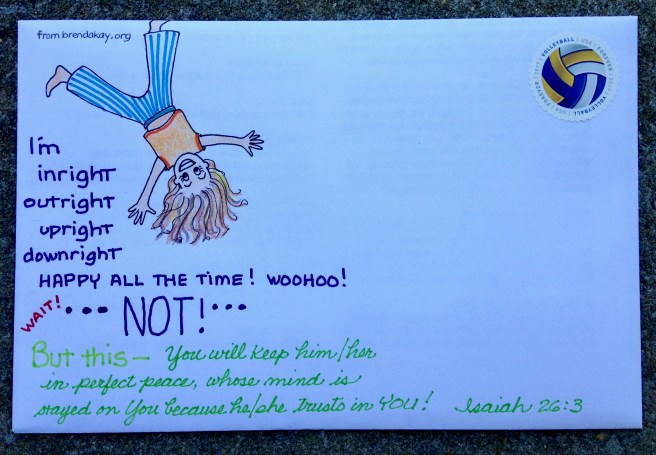 from brendakay.org
VOLLEYBALL USA FOREVER
I'm
inright
outright
upright
downright
HAPPY ALL THE TIME! WOOHOO!
WAIT! ... NOT! ...
But this — You will keep him/her
in perfect peace, whose mind is
stayed on You because he/she trusts in YOU! Isaiah 26:3